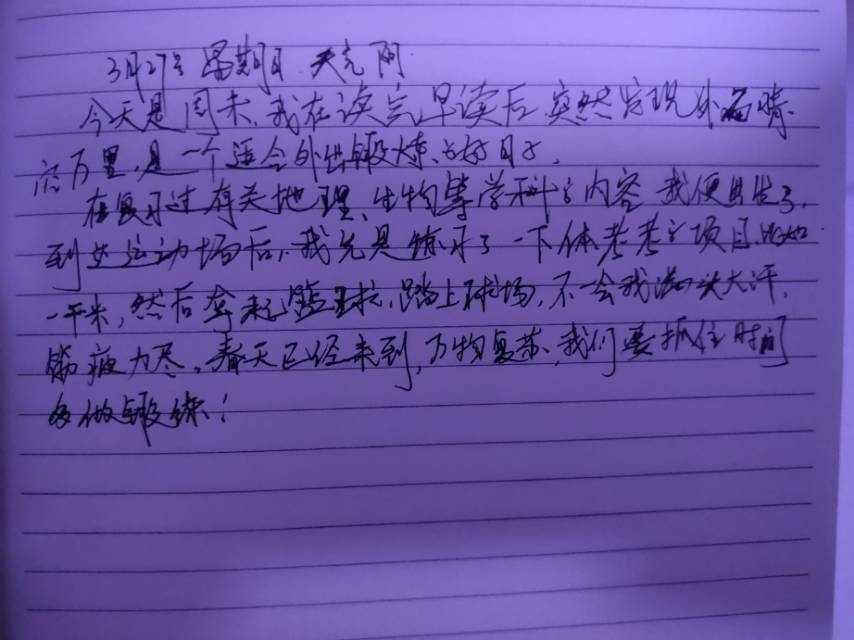 3月27日 星期日 天气阴
今天是周末,我在读完早读后突然发现外面晴
空万里,是一个适合外出锻炼的好日子,
在复习过有关地理、生物等学科的内容我便出发了,
到达运动场后,我先是练习了一下体考考的项目,比如
一千米,然后拿起篮球,踏上球场,不一会我满头大汗,
筋疲力尽。春天已经来到,万物复苏,我们要抓住时间
多做锻炼!